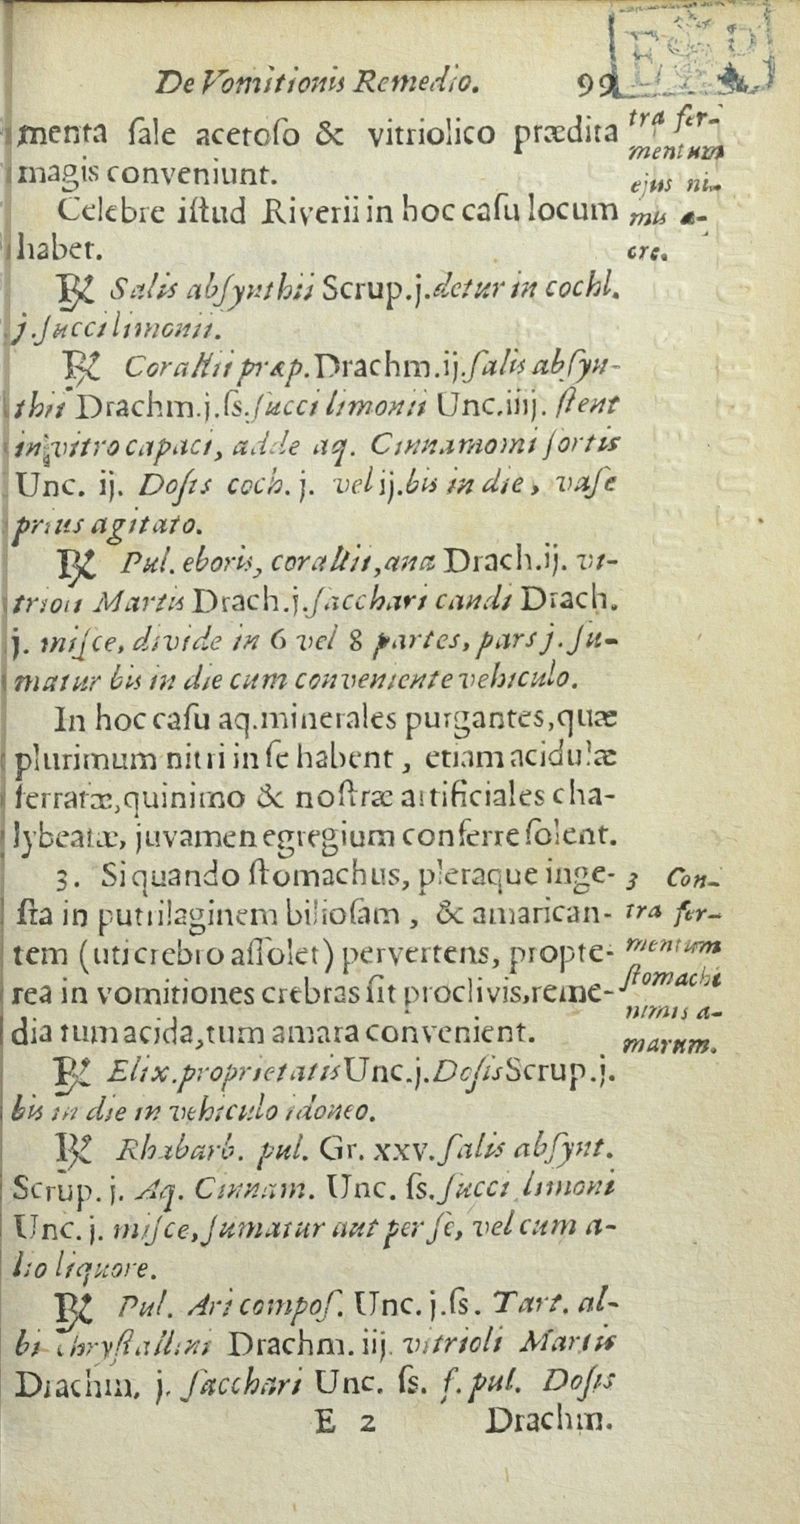 De Vomitionis Remedio. 99
menta ſale acetoſo & vitriolico prædita
magis conveniunt.
Celebre iſtud Riverii in hoc caſu locum
habet.
tra fer-
mentum
ejus ni-
mis a-
cre.
℞ Salis abſynthii Scrup.j.detur in cochl.
j.ſucci limonii.
℞ Corallii præp.Drachm.ij.ſalis abſyn-
thii Drachm.j.ſs.ſucci limonii Unc.iiij. ſtent
in vitro capaci, adde aq. Cinnamomi fortis
Unc. ij. Doſis coch. j. vel ij.bis in die, vaſe
prius agitato.
℞ Pul. eboris, corallii,ana Drach.ij. vi-
trioli Martis Drach.j.ſacchari candi Drach.
j. miſce, divide in 6 vel 8 partes, pars j. ſu-
matur bis in die cum conveniente vehiculo.
In hoc caſu aq.minerales purgantes,quæ
plurimum nitri in ſe habent, etiam acidulæ
ferratæ,quinimo & noſtræ artificiales cha-
lybeatæ, juvamen egregium conferre ſolent.
3. Si quando ſtomachus, pleraque inge-
ſta in putrilaginem bilioſam, & amarican-
tem (uti crebro aſſolet) pervertens, propte-
rea in vomitiones crebras ſit proclivis,reme-
dia tum acida,tum amara convenient.
3 Con-
tra fer-
mentum
ſtomachi
nimis a-
marum.
℞ Elix.proprietatis Unc.j.Doſis Scrup.j.
bis in die in vehiculo idoneo.
℞ Rhabarb. pul. Gr. xxv.ſalis abſynt.
Scrup. j. Aq. Cinnam. Unc. ſs.ſucci limoni
Unc. j. miſce,ſumatur aut per ſe, vel cum a-
lio liquore.
℞ Pul. Ari compoſ. Unc. j.ſs. Tart. al-
bi chryſtallini Drachm. iij. vitrioli Martis
Drachm. j. ſacchari Unc. ſs. f. pul. Doſis
E 2 Drachm.